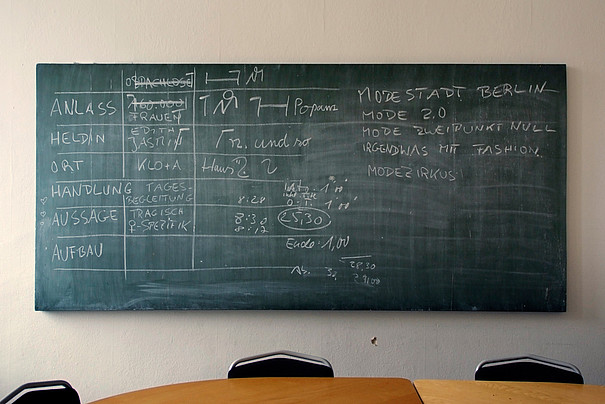 OBDACHLOSE
ANLASS 760.000 FRAUEN Popanz
HELDIN EDITH JASMIN n. und so
ORT KLO+A Haus 2 2
HANDLUNG TAGES-
BEGLEITUNG 8:20 1'00"
AUSSAGE TRAGISCH 8:30 25,30 1'00"
R-SPEZIFIK 8:12
AUFBAU Ende: 1,00
28,30
MODESTADT BERLIN
MODE 2.0
MODE ZWEIPUNKT NULL
IRGENDWAS MIT FASHION.
MODEZIRKUS